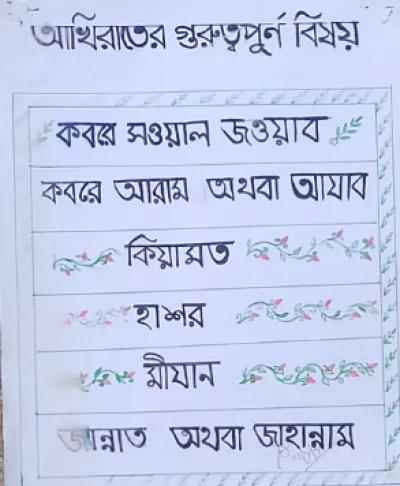 আখিরাতের গুরুত্বপূর্ন বিষয়
কবরে সওয়াল জওয়াব
কবরে আরাম অথবা আযাব
কিয়ামত
হাশর
মীযান
জান্নাত অথবা জাহান্নাম